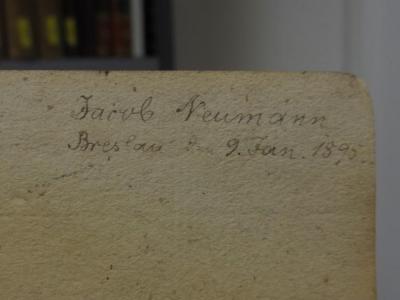 Jacob Neumann
Breslau den 9. Jan. 1895.